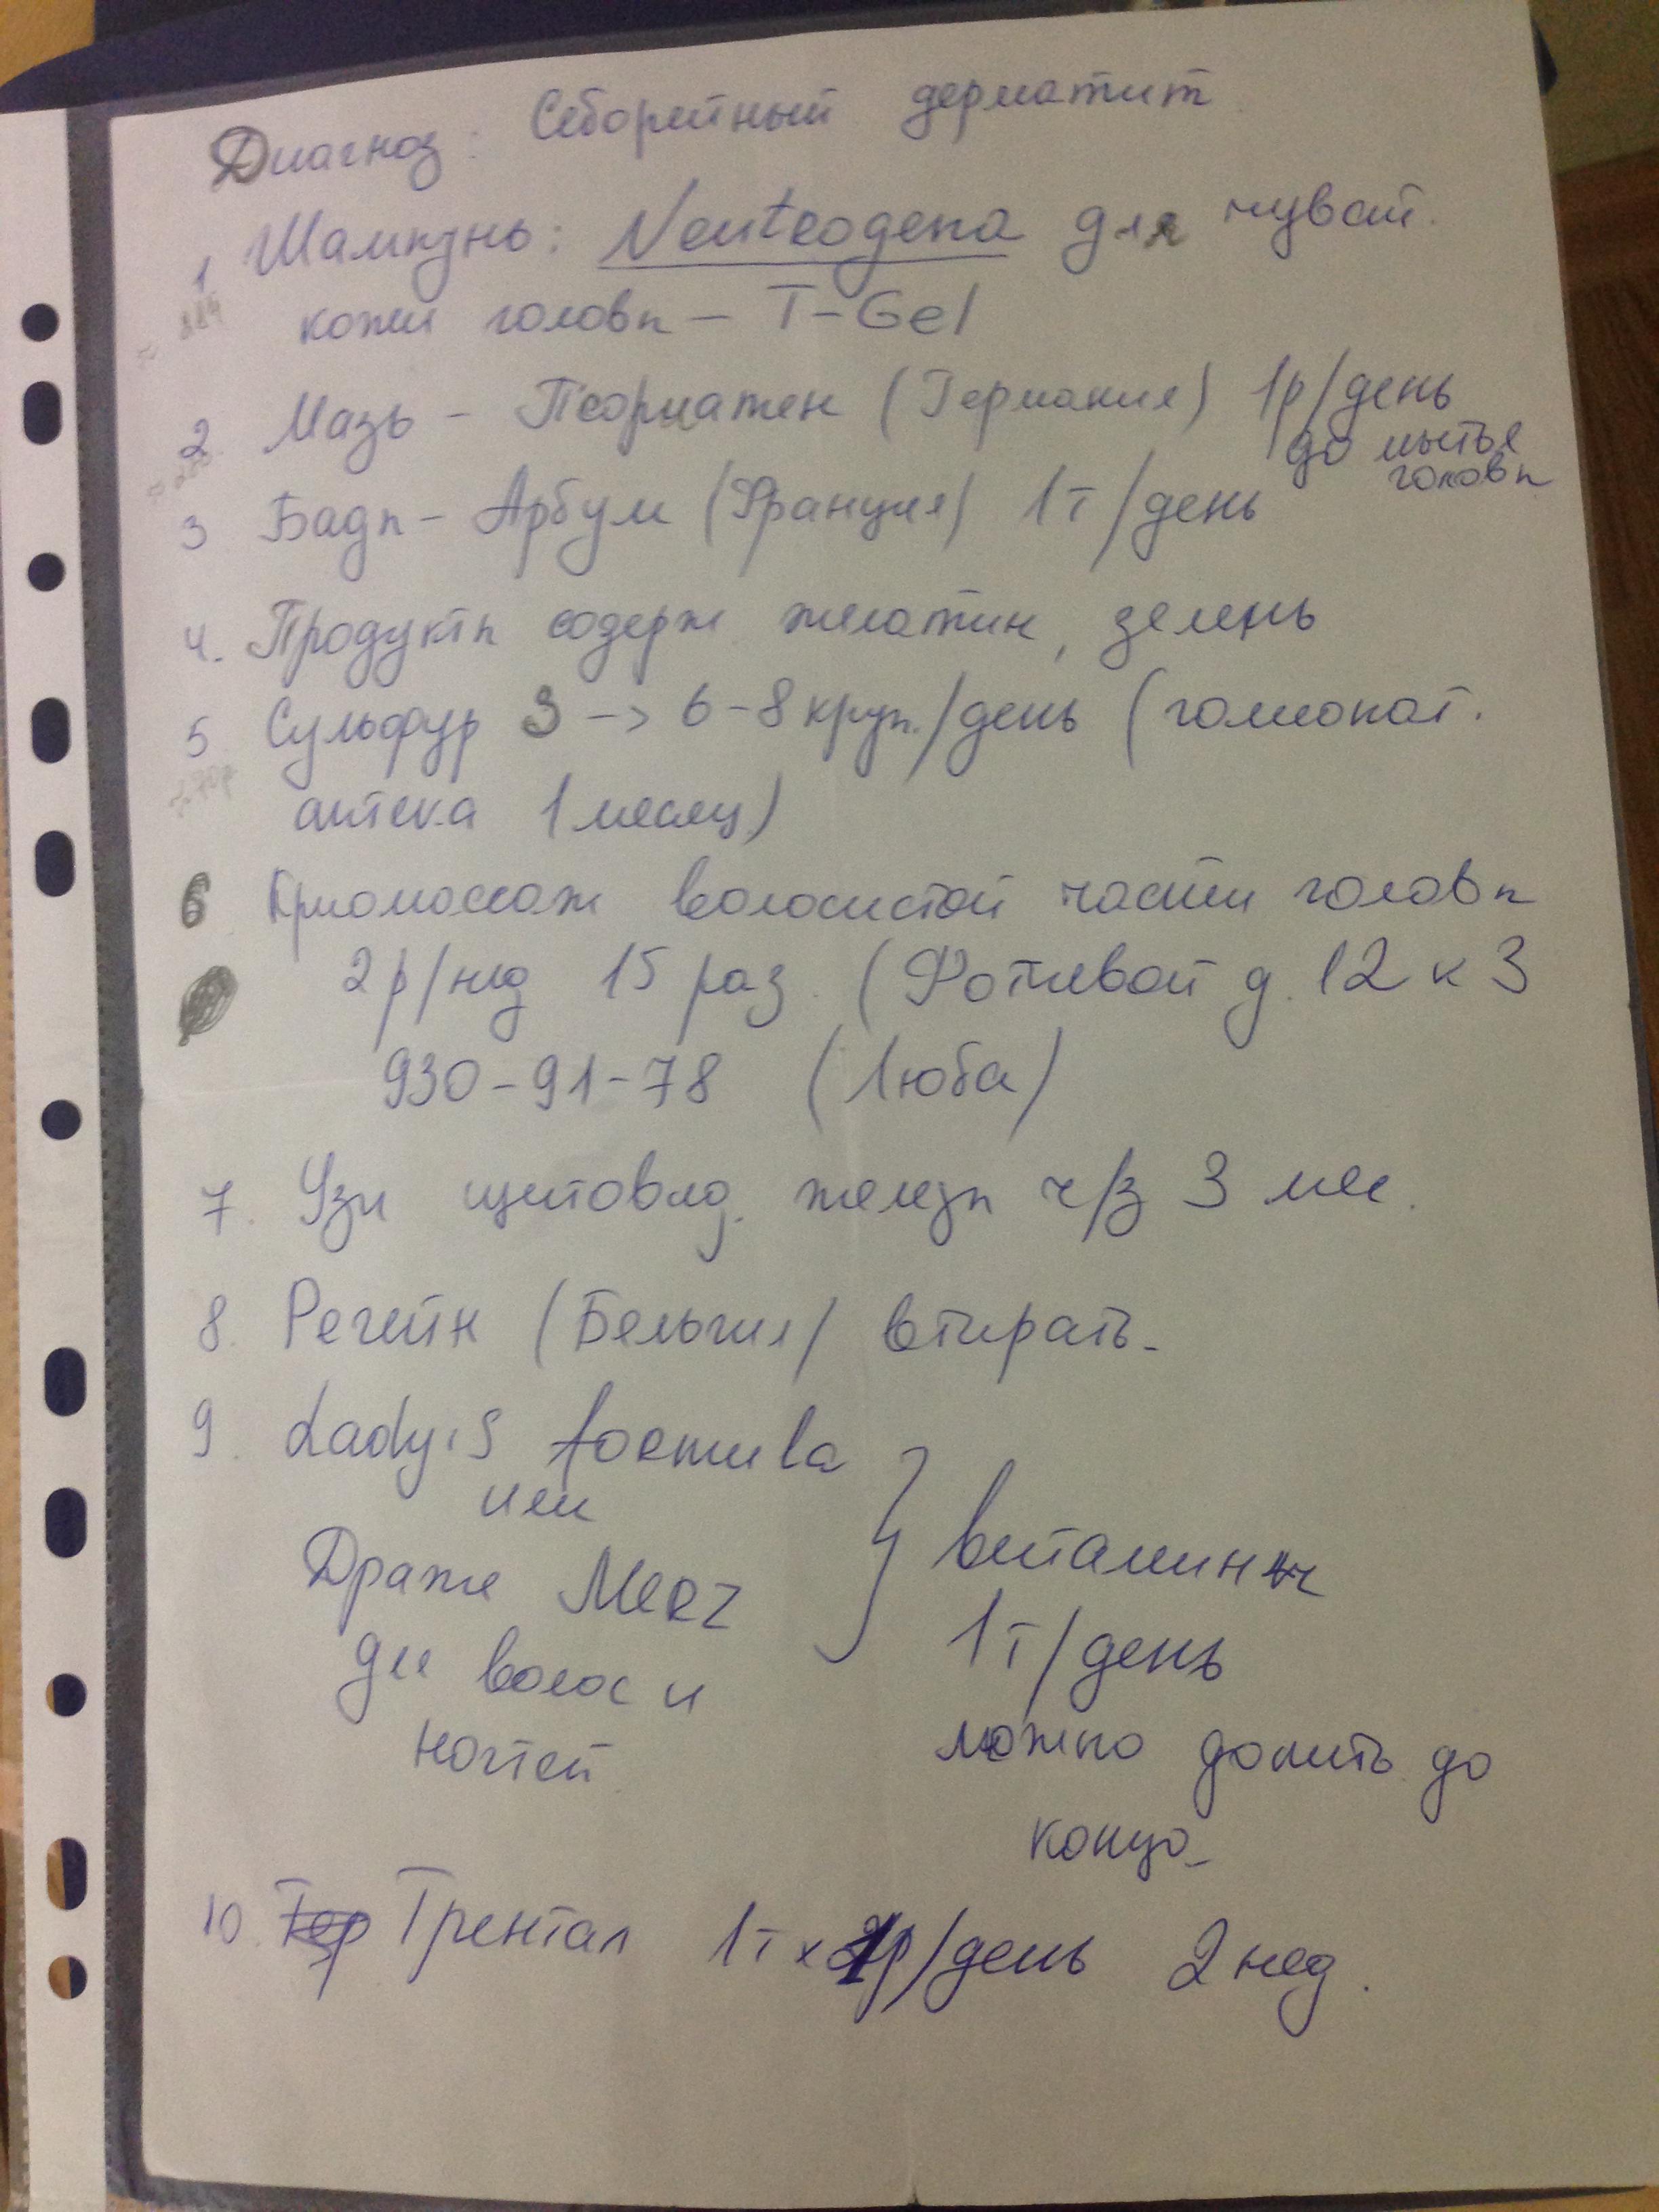 Диагноз: Себорейный дерматит
1 Шампунь: Neutrogena для чувст.
кожи головы – T-Gel
2. Мазь – Псориатен (Германия) 1р/день
до мытья
головы
3 Бады – Арбум (Франция) 1т/день
4. Продукты содерж. желатин, зелень
5 Сульфур 3 -> 6-8 круп./день (гомеопат.
аптека 1 месяц)
6 Криомассаж волосистой части головы
2р/нед 15 раз. (Фотиевой д. 12 к 3
930-91-78 (Люба)
7. Узи щитовид. железы ч/з 3 мес.
8. Регейн (Бельгия) втирать.
9. Lady,S formula
или
Драже Merz
для волос и
ногтей
} витамины
1т/день
можно допить до
конца.
10. Трентал 1т x 1р/день 2 нед.